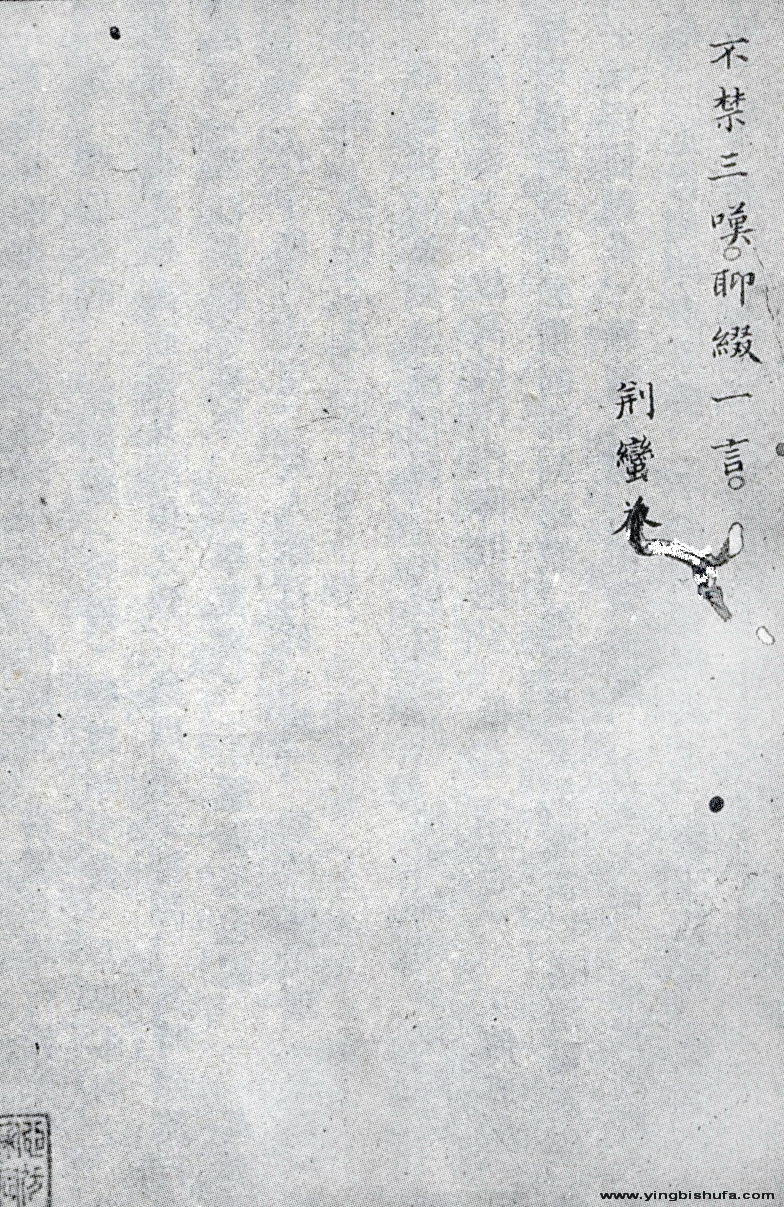 不禁三嘆。聊綴一言。
荆蠻
www.yingbishufa.com